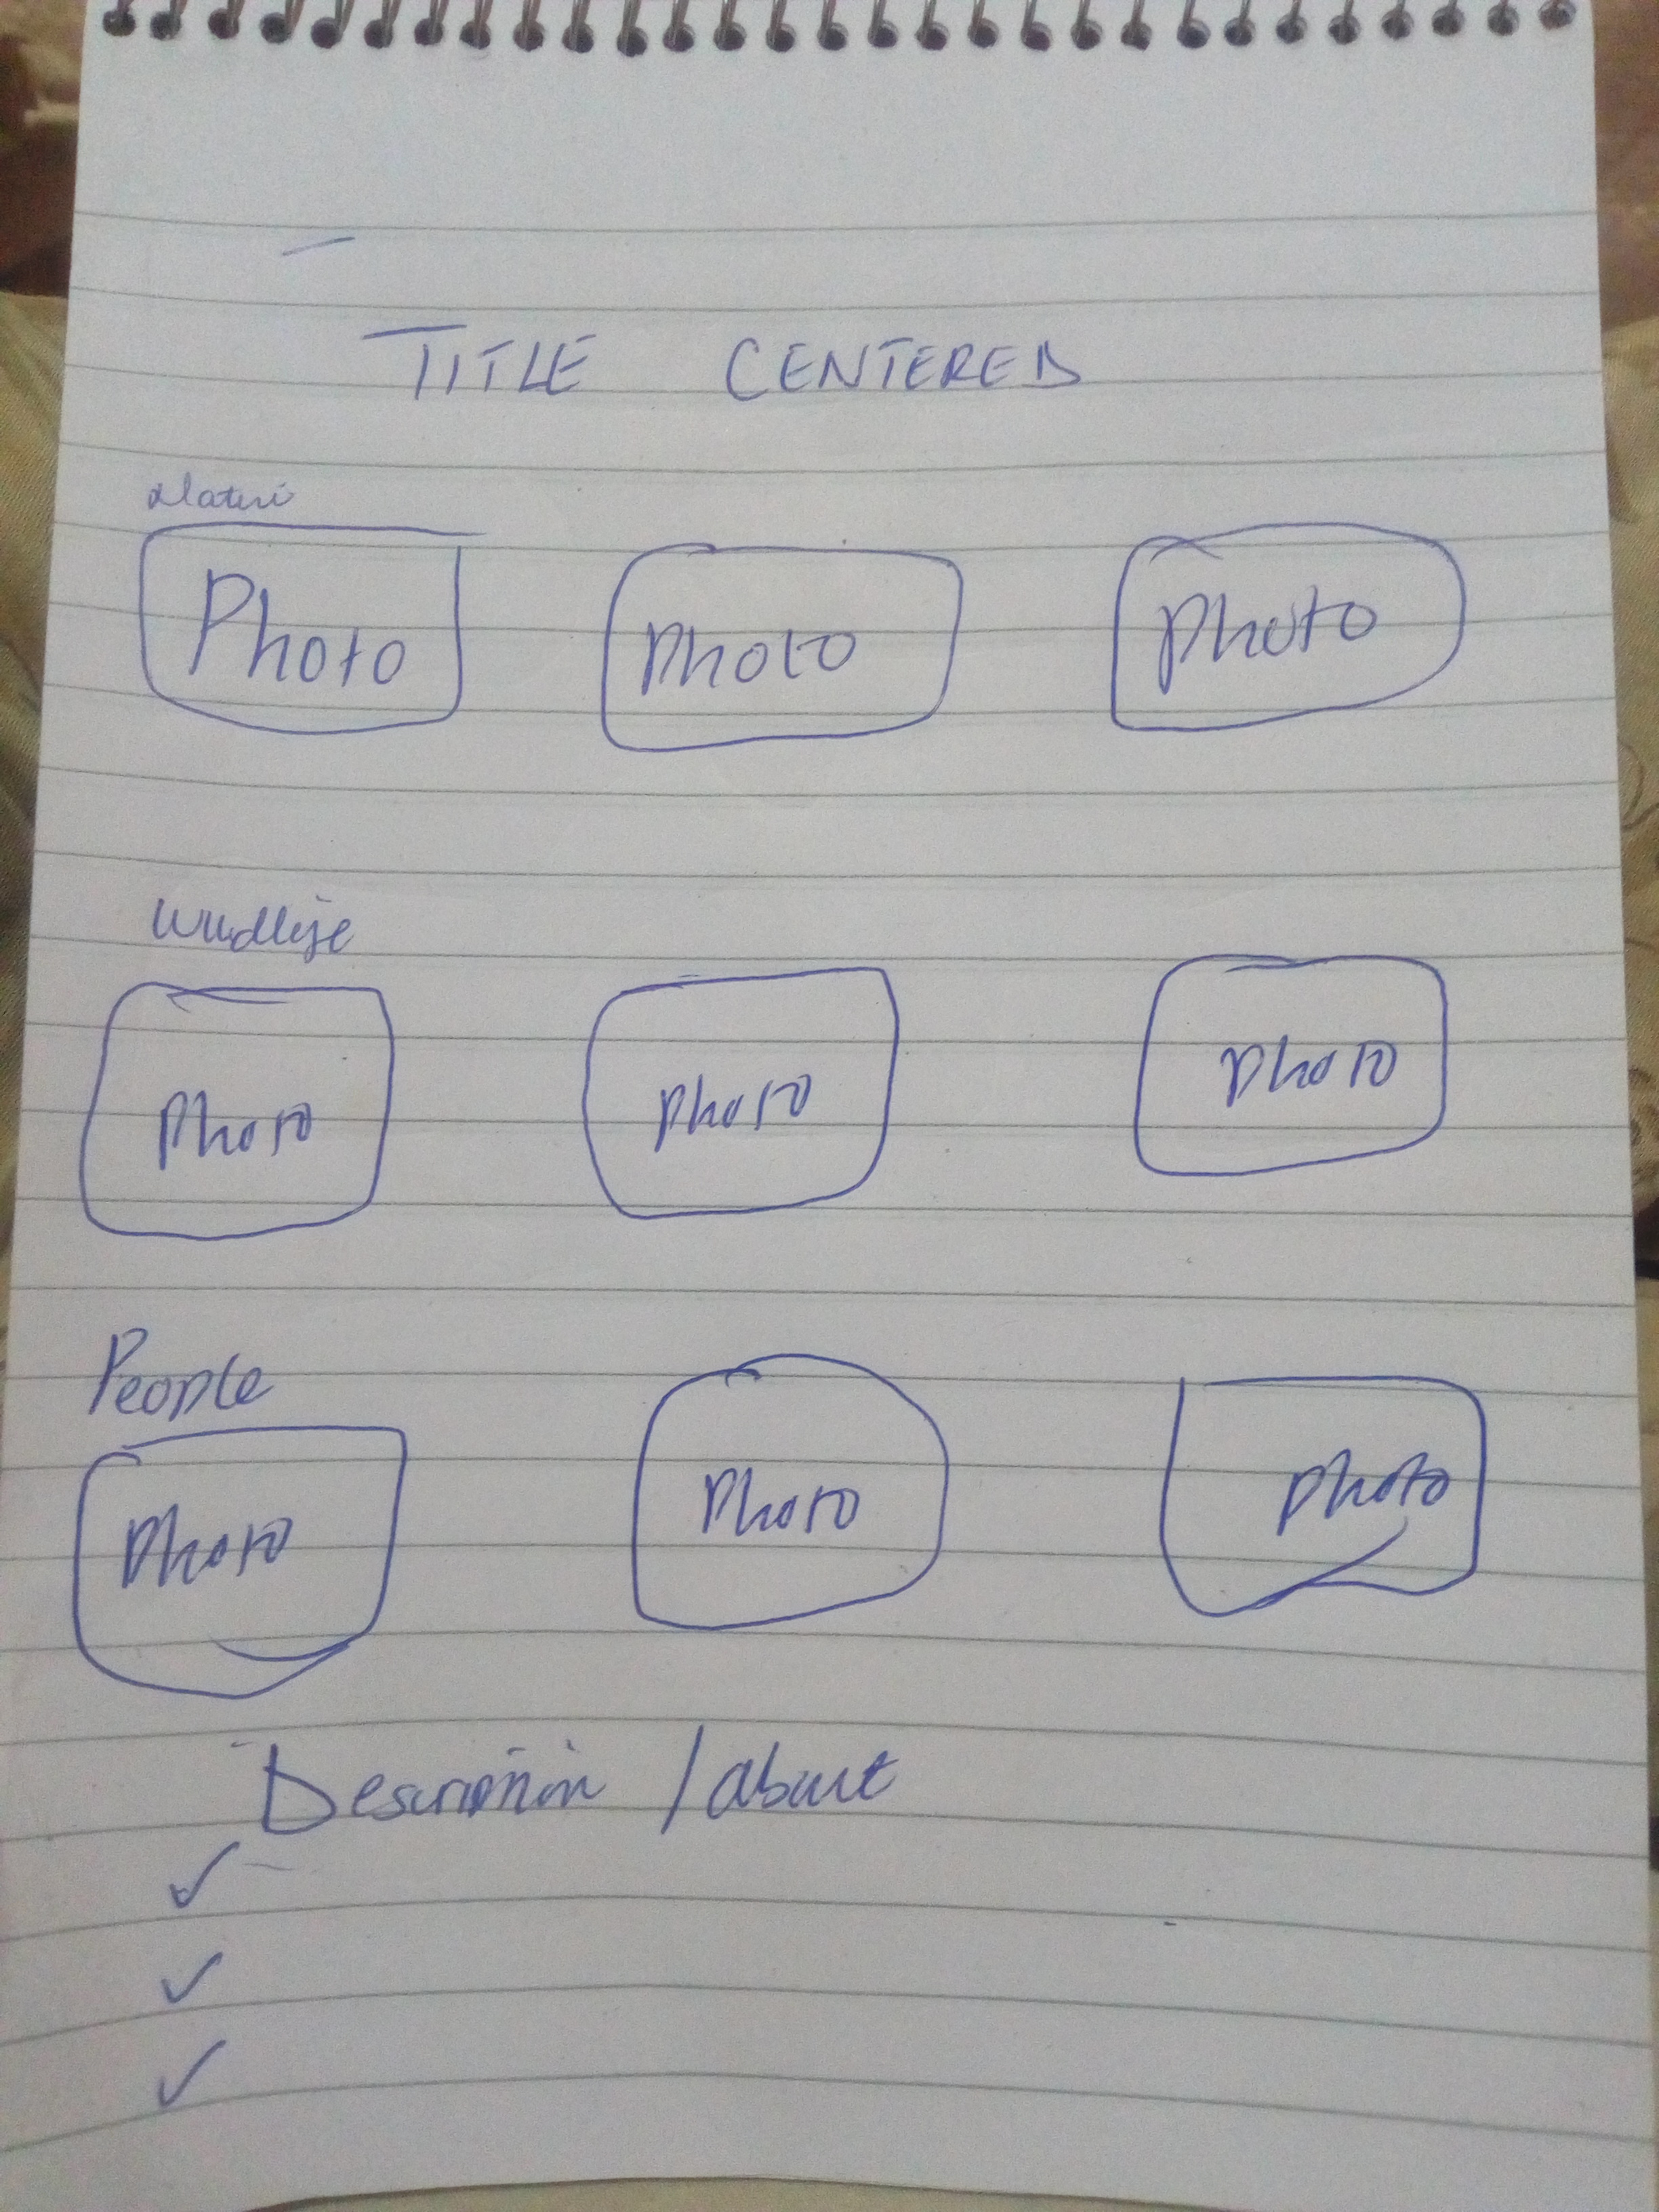 TITLE CENTERED
Nature
Photo Photo Photo
Wildlife
Photo Photo Photo
People
Photo Photo Photo
Description / about
✓
✓
✓